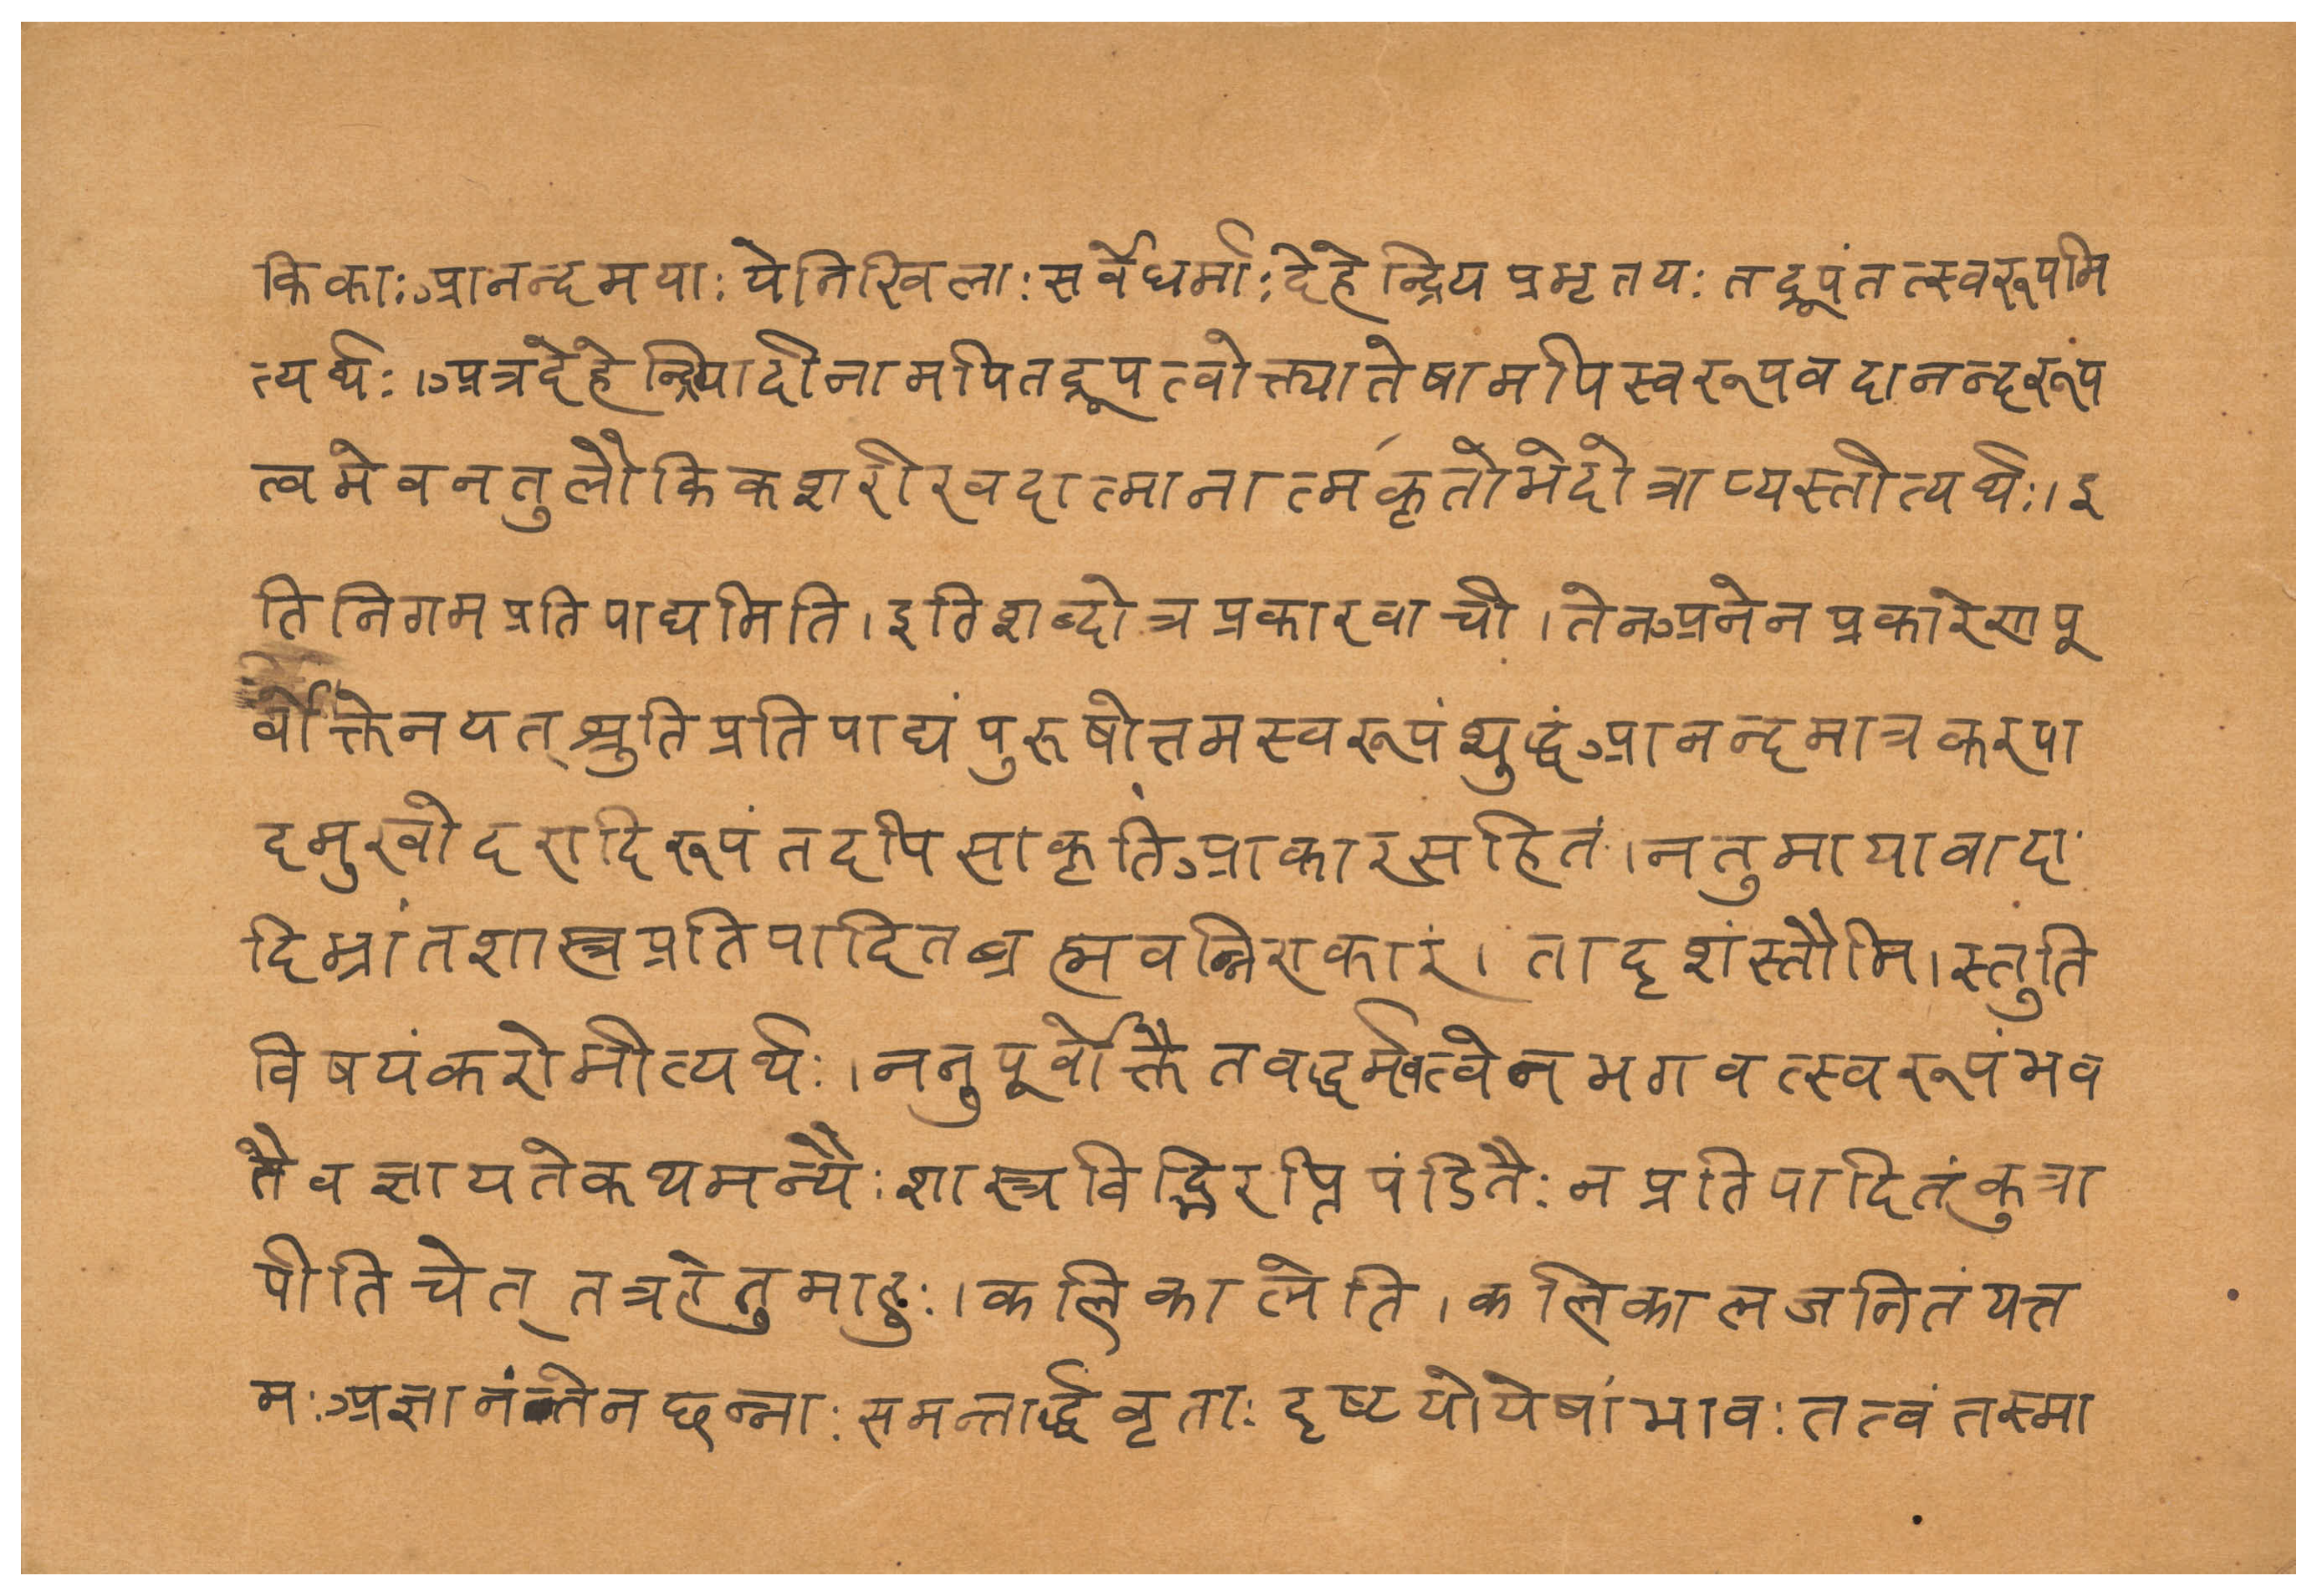 किकाः आनन्दमयाः येनिखिलाः सर्वेधर्माः देहेन्द्रियप्रभृतयः तद्रूपंतत्स्वरूपमि
त्यर्थः । अत्रदेहेन्द्रियादीनामपितद्रूपत्वोक्त्यातेषामपिस्वरूपवदानन्दरूप
त्वमेवनतुलौकिकशरीरवदात्मानात्मकृतोभेदोत्राप्यस्तीत्यर्थः । इ
तिनिगमप्रतिपाद्यमिति । इतिशब्दोत्रप्रकारवाची । तेनअनेनप्रकारेणपू
र्वोक्तेनयत् श्रुतिप्रतिपाद्यंपुरुषोत्तमस्वरूपंशुद्धंआनन्दमात्रकरपा
दमुखोदरादिरूपंतदपिसाकृतिंआकारसहितं । नतुमायावादा
दिभ्रांतशास्त्रप्रतिपादितब्रह्मवन्निराकारं । तादृशंस्तौमि । स्तुति
विषयंकरोमीत्यर्थः । ननुपूर्वोक्तैतवद्धर्मवत्वेनभगवत्स्वरूपंभव
तैवज्ञायतेकथमन्यैः शास्त्रविद्भिरपिपंडितैः नप्रतिपादितंकुत्रा
पीतिचेत् तत्रहेतुमाहुः । कलिकालेति । कलिकालजनितंयत्त
मः अज्ञानंतेनछन्नाः समन्तार्द्धवृताः दृष्टयोयेषांभावः तत्वंतस्मा